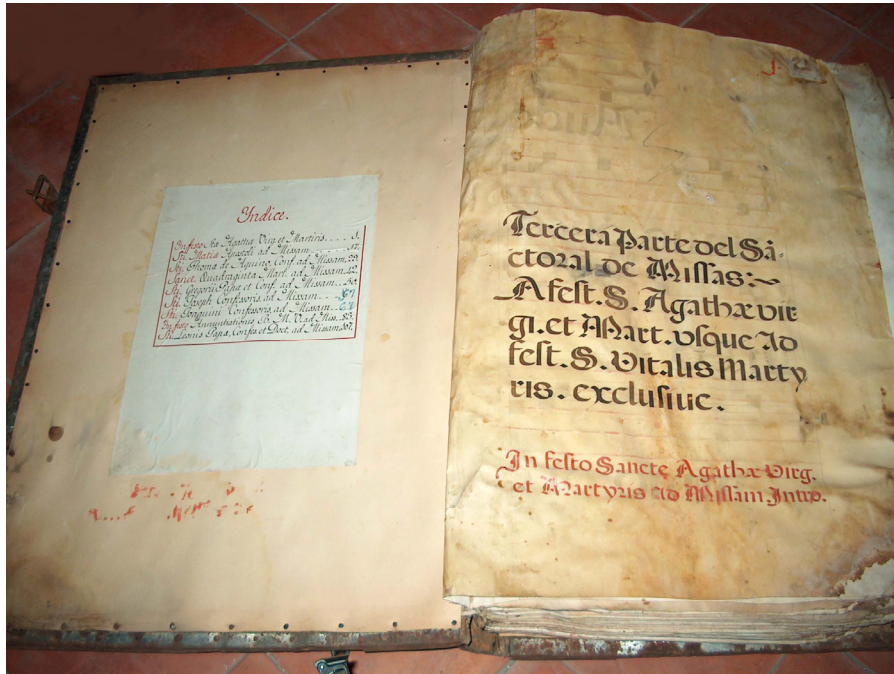 Yndice.
In festo Stæ Agathæ Virg. et Martiris.... 1.
Sti. Matiæ Apostoli ad Missam.... 12.
Sti. Thomæ de Aquino, Conf. ad Missam. 23.
Sanct. Quadraginta Mart. ad Missam. 42.
Sti. Gregorii Papæ et Conf. ad Missam..50.
Sti. Joseph Confessoris, ad Missam...
Sti. Joaquini Confessoris, ad Missam..
In festo Annuntiationis B. M. V. ad Miss..83.
Sti. Leonis Papæ, Confes et Doct. ad Missam.107.
1.
Tercera Parte del Sã-
ctoral de Missas:~
A fest. S. Agathæ vir
gi. et Mart. vsque ad
fest. S. Vitalis Marty
ris. exclusiue.
In festo Sancte Agathæ Virg.
et Martyris ad Missam Intro.